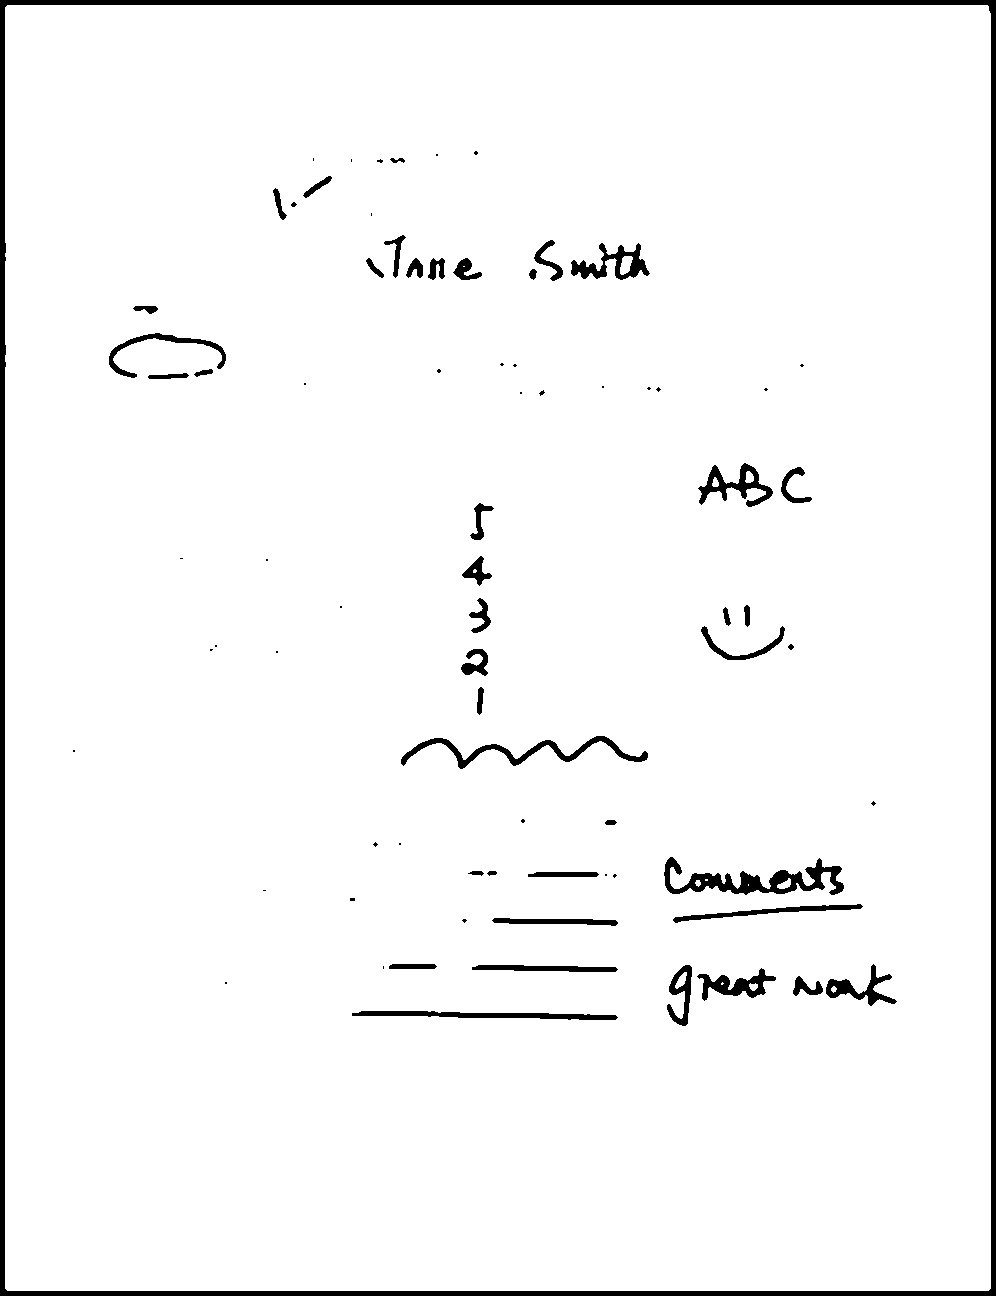 Jane Smith
ABC
5
4
3
2
1
Comments
great work